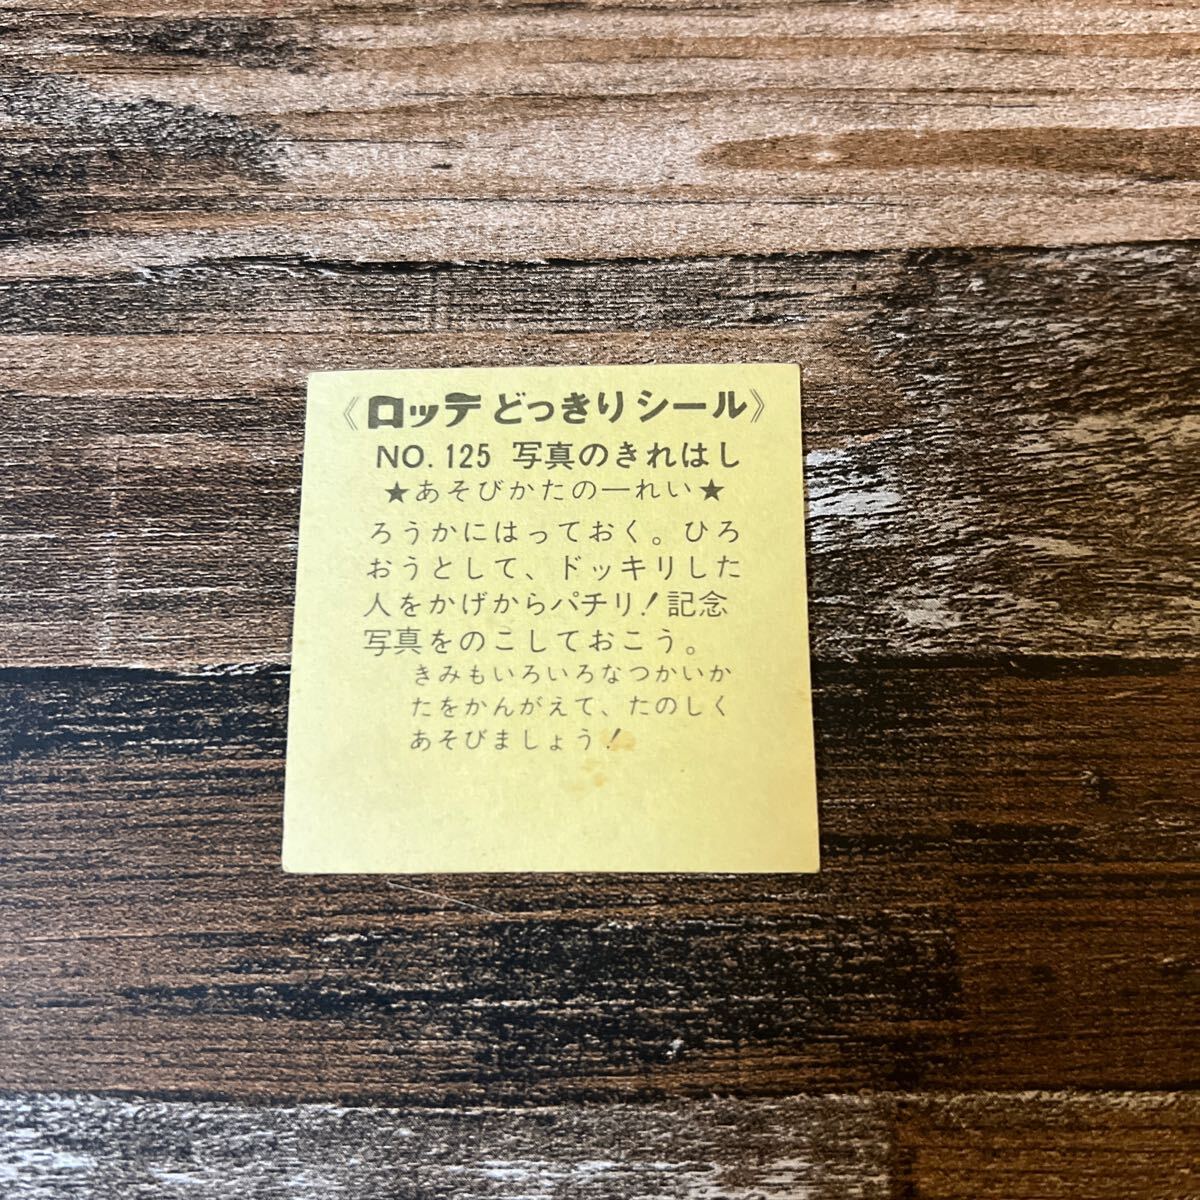 《ロッテ どっきりシール》
NO. 125 写真のきれはし
★あそびかたの一れい★
ろうかにはっておく。ひろ
おうとして、ドッキリした
人をかげからパチリ！記念
写真をのこしておこう。
きみもいろいろなつかいか
たをかんがえて、たのしく
あそびましょう！